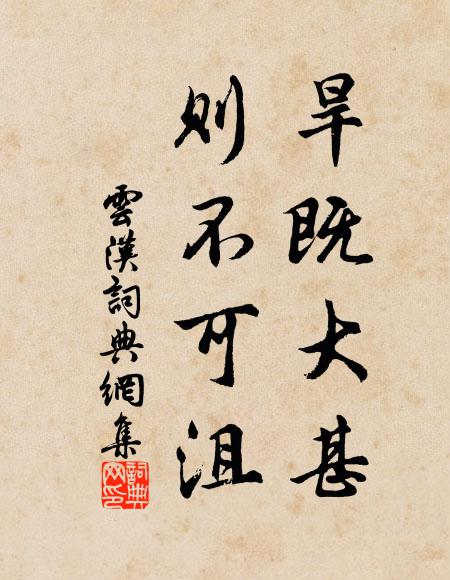 旱既大甚
则不可沮
雲漢詞典網集
詞典网印